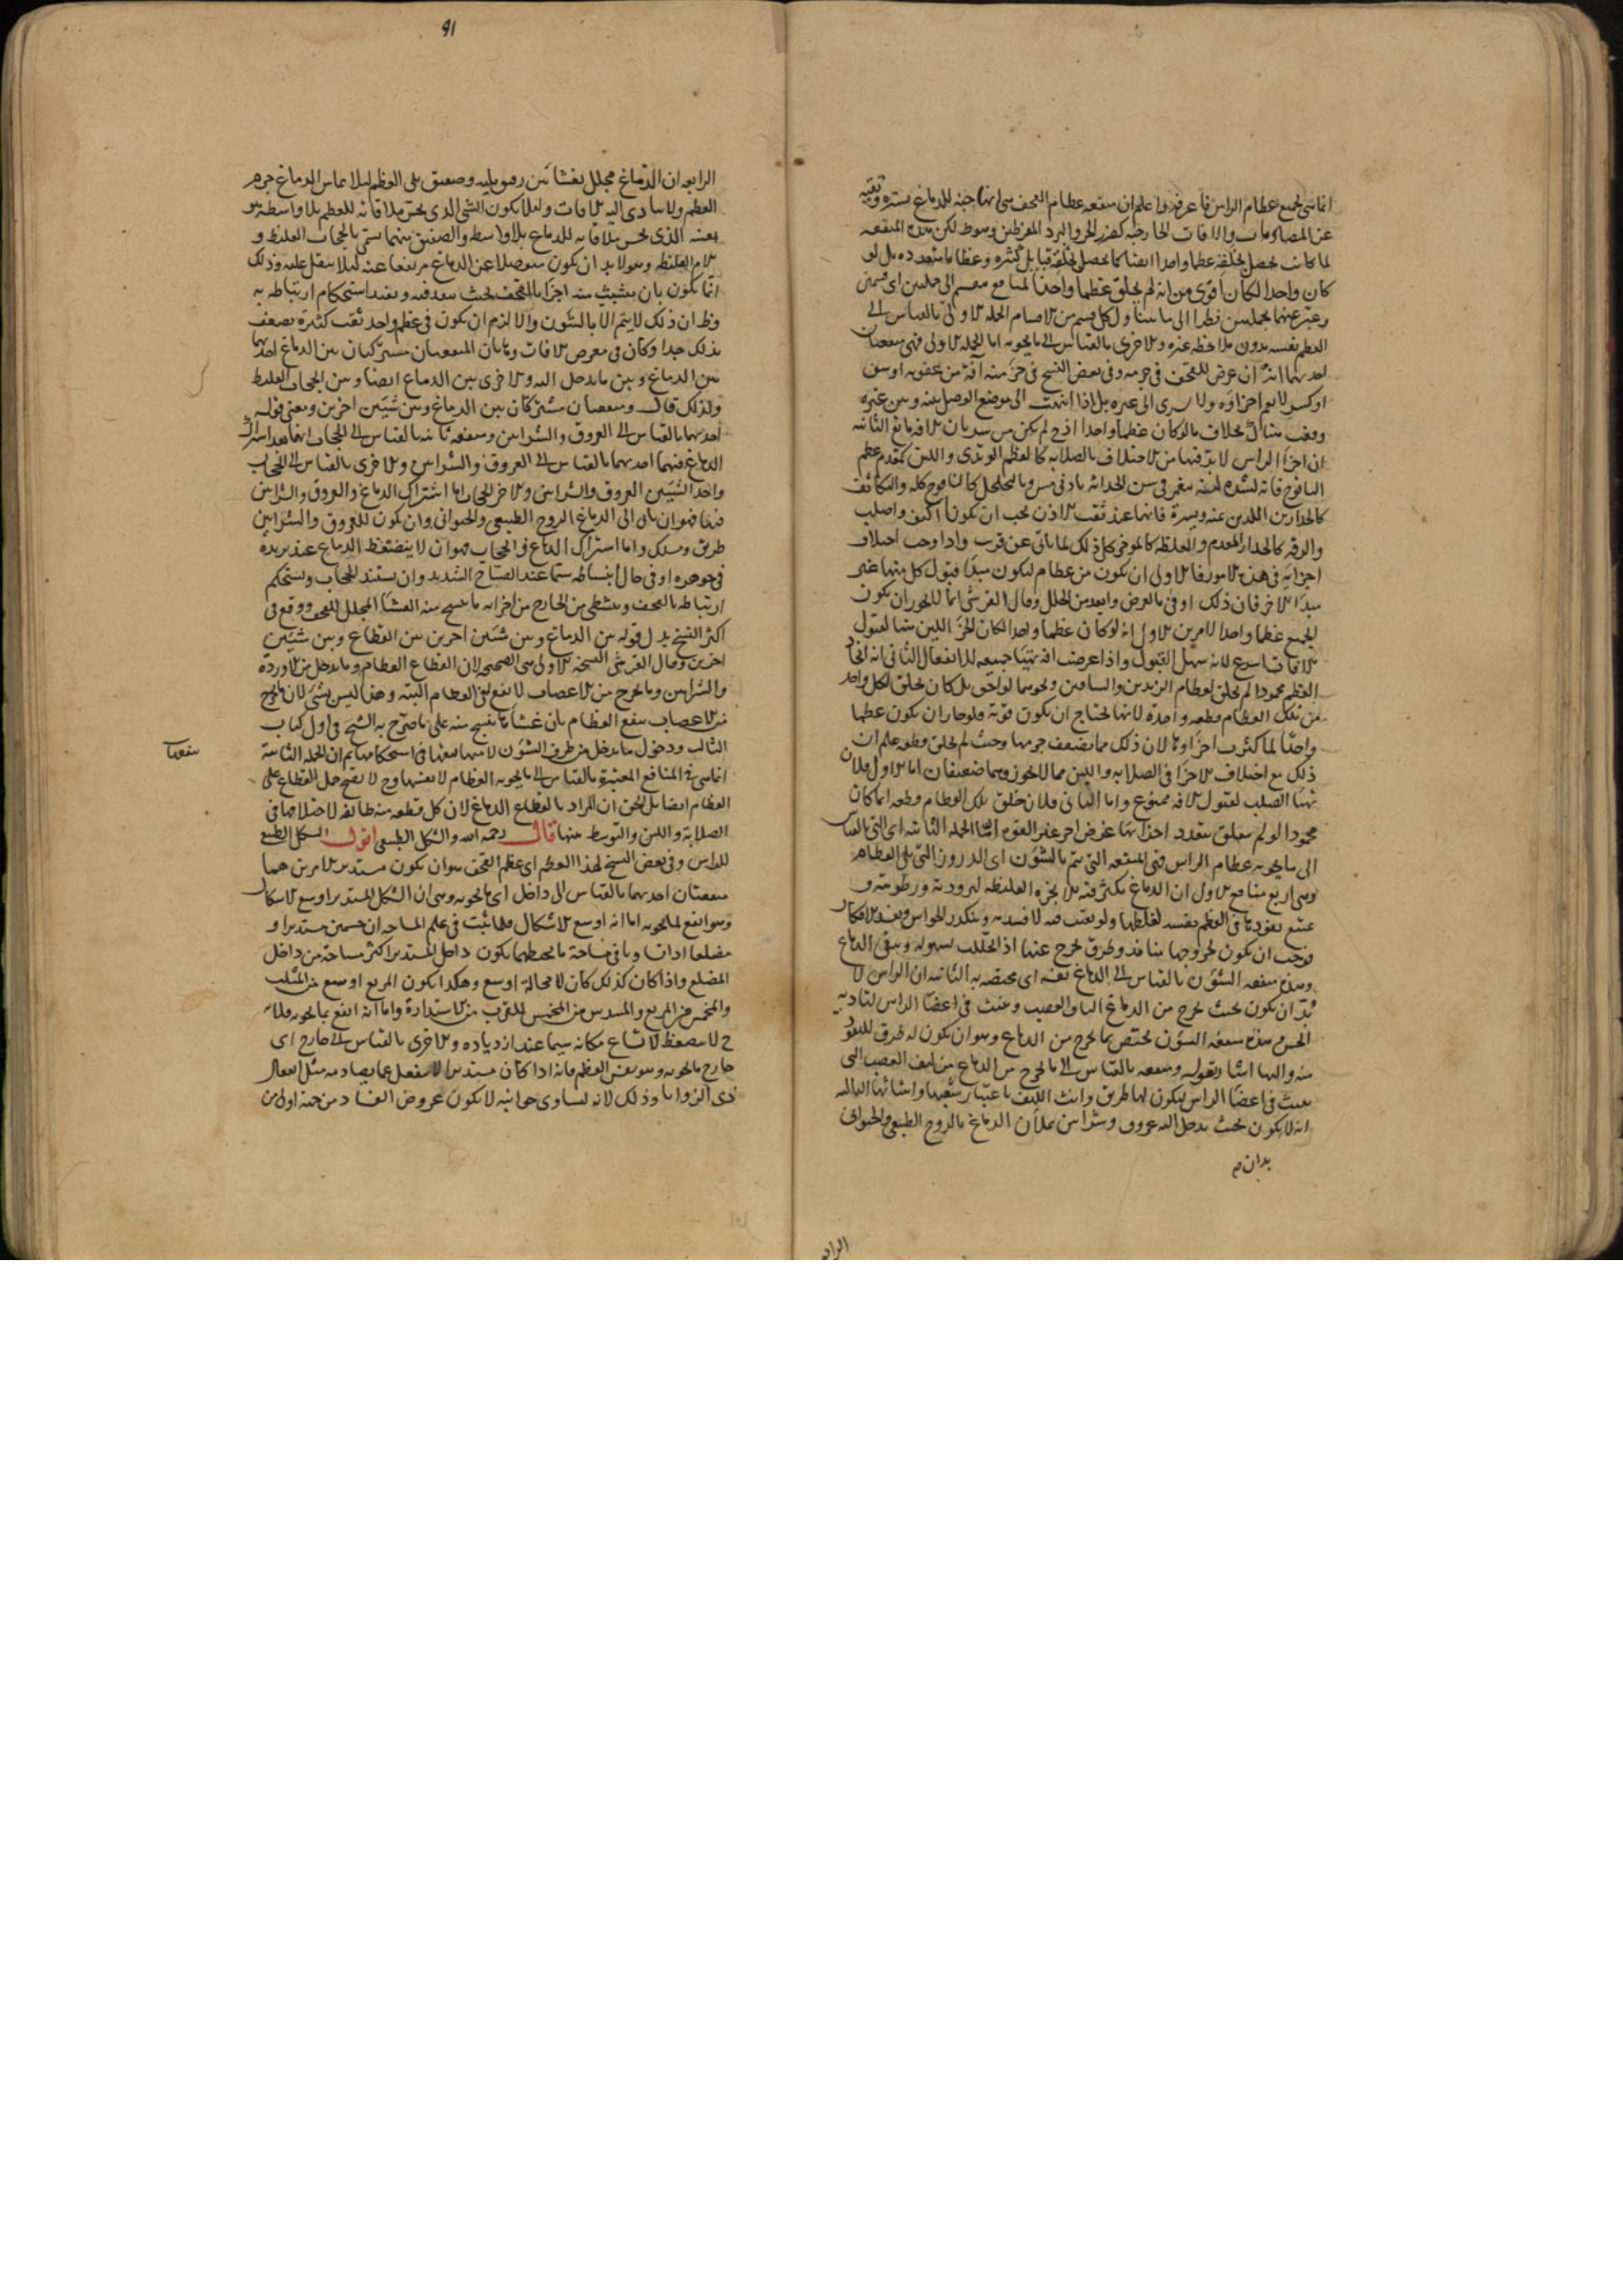 انما هى لجميع عظام الراس فاعرفه واعلم ان منفعه عظام القحف هى انها جنه للدماغ يستره ويقيه
عن المصادمات والافات الخارجيه كضرر الحر والبرد المفرطين وسوط لكن هذه المنفعه
لما كانت تحصل بخلقة عظما واحدا ايضا كما تحصل بخلقة قبايل كثيره وعظاما متعدده بل لو
كان واحدا لكان اقوى من انه لم يخلق عظما واحدا لمنافع تنقسم الى جملتين اى قسمين
وعبر عنهما بجملتين نظرا الى ما يتناول كل قسم من الاقسام الجمله الاولى بالقياس الى
العظم نفسه بدون ملاحظه غيره والاخرى بالقياس الى ما يحويه اما الجمله الاولى فهى منفعتان
احديهما انه ان عرض للقحف فى جرمه وفى بعض النسخ فى جزء منه آفة من عفونه او شق
او كسر لا يعم اجزاوه ولا يسرى الى غيره بل اذا انتهت الى موضع الوصل بينه وبين غيره
وقفت هناك بخلاف ما لو كان عظما واحدا اذ ح لم يكن من سريان الافه مانع الثانيه
ان اجزا الراس لا بد فيها من الاختلاف بالصلابه كالعظم الوتدى واللين كمقدم عظم
اليافوخ فانه لشده لينه ينغمر فى سن الحداثه بادنى مس وبالتخلخل كاليافوخ كله والتكاثف
كالجدارين اللذين يمنه ويسرة فانهما عند ثقب الاذن يجب ان يكونا اكثف واصلب
والرقه كالجدار المقدم والغلظه كالموخر كل ذلك لما ياتى عن قريب واذا وجب اختلاف
اجزايه فى هذه الامور فالاولى ان يكون من عظام ليكون مبدا قبول كل منها غير
مبدا الاخر فان ذلك اوفى بالغرض وابعد من الخلل وقال القرشى انما لا يجوز ان يكون
الجميع عظما واحدا لامرين الاول انه لو كان عظما واحدا لكان الجزء اللين منها لقبول
الافات اسرع لانه سهل القبول واذا عرضت افه تهيا جميعه للانفعال الثانى انه اتحاد
العظم محمودا لم يخلق لعظام الزندين والساقين ونحوهما لواحق بل كان يخلق لكل واحد
من تلك العظام قطعه واحدة لانها يحتاج ان يكون قوية فلو جاز ان يكون عظما
واحدا لما كثرت اجزاوها لان ذلك مما يضعف جرمها وحيث لم يخلق قطعه علم ان
ذلك مع اختلاف الاجزا فى الصلابه واللين مما لا يجوز وهما ضعيفان اما الاول فلان
تهيا الصلب لقبول الافه ممنوع واما الثانى فلان خلق تلك العظام قطعه انما كان
محمودا لو لم يتعلق بتعدد اجزائها غرض اخر غير القوه امثا الجمله الثانيه اى التى بالقياس
الى ما يحويه عظام الراس فهى المنفعه التى تتم بالشؤن اى الدروز التى بلى العظام
وهى اربع منافع الاول ان الدماغ يكثر فيه الابخره الغليظه لبرودته ورطوبته و
يمتنع نفوذها فى العظم نفسه لغلظها ولو بقيت فيه لافسدته وينكدر الحواس ويفسد الافكار
فوجب ان يكون لخروجها منافذ وطرق تخرج عنها اذا تحللت بسهوله وينقى الدماغ
وهذه منفعه الشؤن بالقياس الى الدماغ نفسه اى مختصه به الثانيه ان الراس لا
بد ان يكون بحيث يخرج من الدماغ الياف العصب وينبث فى اعضا الراس لتاديه
الحس وهذه منفعه الشؤن تختص بما يخرج من الدماغ وهو ان يكون له طرق للنفوذ
منه واليها اشار بقوله ومنفعه بالقياس الى ما يخرج من الدماغ من ليف العصب التى
ينبث فى اعضا الراس ليكون لها طريق وانث الليف باعتبار شعبها وانشائها الثالثه
انه لا يكون بحيث يدخل اليه عروق وشراين يملان الدماغ بالروح الطبيعى والحيوانى
بدان م
الرابع
91
الرابعه ان الدماغ مجلل بغشائين رقيق يليه وصفيق يلى العظم ليلا يماس الدماغ جرم
العظم ولا يتادى اليه الافات وليلا يكون الشى الذى يحسن ملاقاته للعظم بلا واسطه هو
بعينه الذى يحسن ملاقاته للدماغ بلا واسطه والصفيق منهما يسمى بالحجاب الغليظ و
الام الغليظه وهو لا بد ان يكون منفصلا عن الدماغ مرتفعا عنه ليلا يثقل عليه وذلك
انما يكون بان يتشبث منه اجزا بالقحف بحيث ينفذ فيه ويفيد استحكام ارتباطه به
وظ ان ذلك لا يتم الا بالشئون والا لزم ان يكون فى عظم واحد ثقب كثيرة يضعف
بذلك جدا وكان فى معرض الافات وهاتان المنفعتان مشتركتان بين الدماغ احديهما
بين الدماغ وبين ما يدخل اليه والاخرى بين الدماغ ايضا وبين الحجاب الغليظ
ولذلك قال ومنفعتان مشتركتان بين الدماغ وبين شيئين اخرين ومعنى قوله
احديهما بالقياس الى العروق والشراين ومنفعه ثانيه بالقياس الى الحجاب انهما بعد اشتراك
الدماغ فيهما احديهما بالقياس الى العروق والشراين والاخرى بالقياس الى الحجاب
واحد الشيئين العروق والشراين والاخر الحجاب اما اشتراك الدماغ والعروق والشراين
فيها فهو ان ياتى الى الدماغ الروح الطبيعى والحيوانى وان يكون للعروق والشراين
طريق ومسلك واما اشتراك الدماغ والحجاب فهو ان لا ينضغظ الدماغ عند تزيده
فى جوهره او فى حال انبساطه سيما عند الصياح الشديد وان يستند الحجاب ويستحكم
ارتباطه بالقحف ويتشظى من الخارج من اجزائه ما ينسج منه الغشا المجلل للقحف ووقع فى
اكثر النسخ بدل قوله بين الدماغ وبين شيئين اخرين بين القطاع وبين شيئين
اخرين وقال القرشى النسخه الاولى هى الصحيحه لان القطاع العظام وما يدخل من الاوردة
والشراين وما يخرج من الاعصاب لا ينفع فى العظام البته وهذا ليس بشى لان ما يخرج
من الاعصاب ينفع العظام بان غشاها ينسج منه على ما صرح به الشيخ فى اول كتاب
الثالث ودخول ما يدخل من طرف الشئون لا سيما بعضها فى استحكامها ثم ان الجمله الثانيه
منفعتا
انما هى فى المنافع المعتبرة بالقياس الى ما يحويه العظام لا بعينها وح لا يصح حمل القطاع على
العظام ايضا بل الحق ان المراد بالقطاع الدماغ لان كل قطعه منه طايفه لاختلافها فى
الصلابة واللين والتوسط بينها قال رحمه الله والشكل الطبيعى اقول الشكل الطبيعى
للراس وفى بعض النسخ لهذا العظم اى عظم القحف هو ان يكون مستدير لامرين هما
منفعتان احديهما بالقياس الى داخل اى ما يحويه وهى ان الشكل المستدير اوسع الاشكال
وهو انفع لما يحويه اما انه اوسع الاشكال فلما ثبت فى علم المساحه ان جسمين مستديرا و
مضلعا اذا تساويا فى مساحة ما يحيطهما يكون داخل المستدير اكثر مساحة من داخل
المضلع واذا كان كذلك كان لا محالة اوسع وهكذا يكون المربع اوسع من المثلث
والمخمس من المربع والمسدس من المخمس للقرب من الاستدارة واما انه انفع بما يحويه فلانه
ح لا ينضغظ لاتساع مكانه سيما عند ازدياده والاخرى بالقياس الى خارج اى
خارج ما يحويه وهو نفس العظم فانه اذا كان مستديرا لا ينفعل عما يصادمه مثل انفعال
ذى الزوايا وذلك لانه لتساوى جوانبه لا يكون عروض الفساد من جهة اولى من